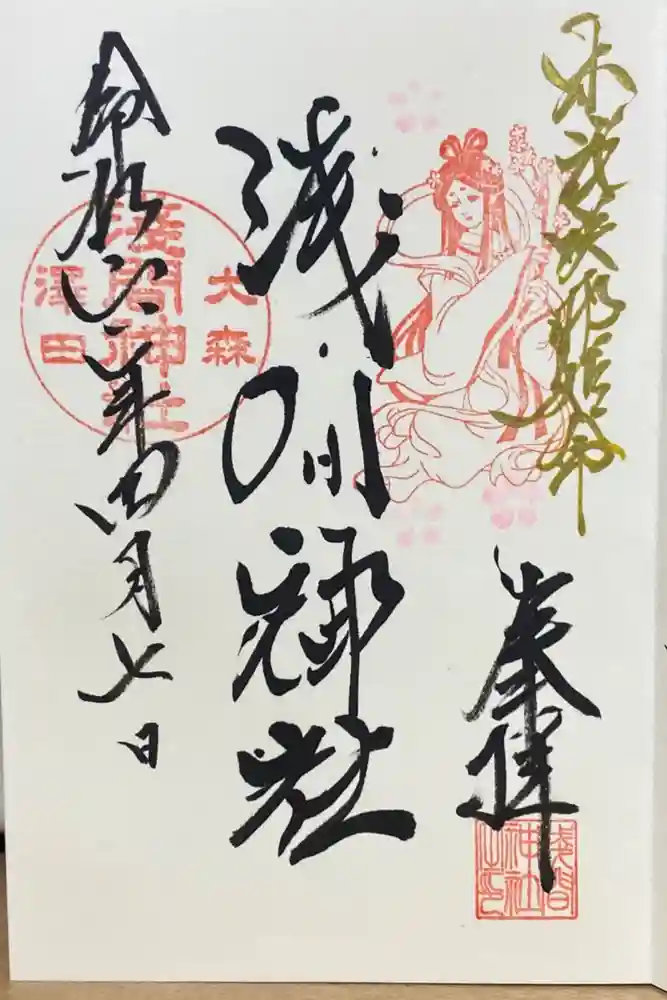 木花咲耶姫命
奉拝
浅間
神社
之印
浅間神社
大森
淺間神社
澤田
令和六年四月七日